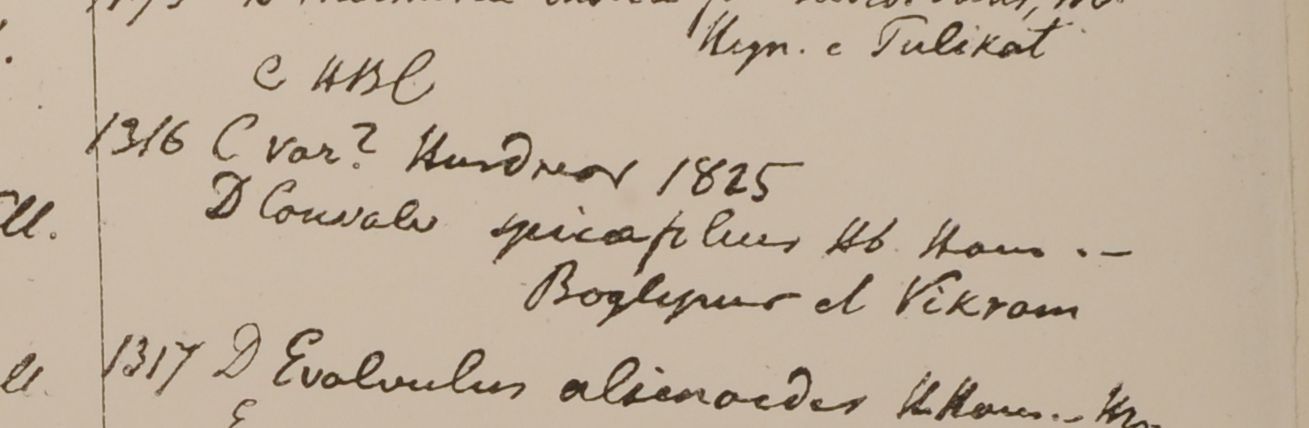 Heyn. e Tulikat
C HBC
1316 C var? Hurdwar 1825
D Convolv spicæflius Hb Ham. -
Boglipur et Vikram
ll.
1317 D Evolvulus alsinoides H Ham. -